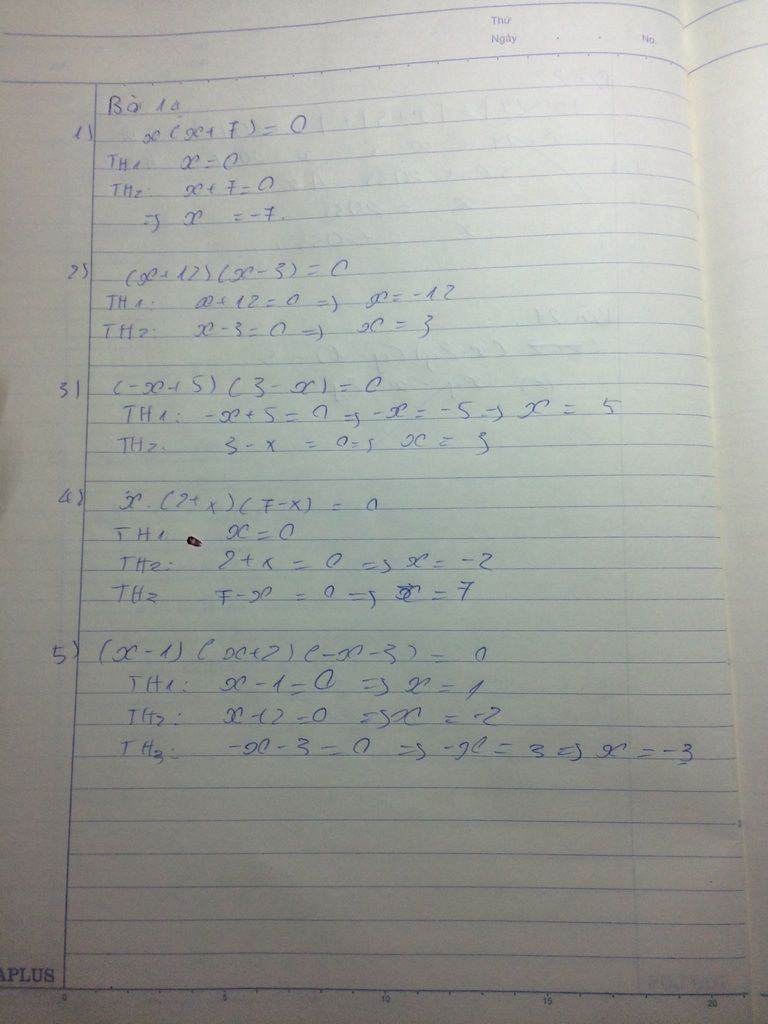 Thứ
Ngày . . No.
Bài 1a
1) x(x+7) = 0
TH1 x = 0
TH2: x+7 = 0
=> x = -7.
2) (x+12)(x-3) = 0
TH1: x+12 = 0 => x = -12
TH2: x-3 = 0 => x = 3
3) (-x+5)(3-x) = 0
TH1: -x+5 = 0 => -x = -5 => x = 5
TH2. 3-x = 0 => x = 3
4) x.(2+x)(7-x) = 0
TH1 x = 0
TH2: 2+x = 0 => x = -2
TH2 7-x = 0 => x = 7
5) (x-1)(x+2)(-x-3) = 0
TH1: x-1 = 0 => x = 1
TH2: x+2 = 0 => x = -2
TH3: -x-3 = 0 => -x = 3 => x = -3
APLUS
0 5 10 15 20